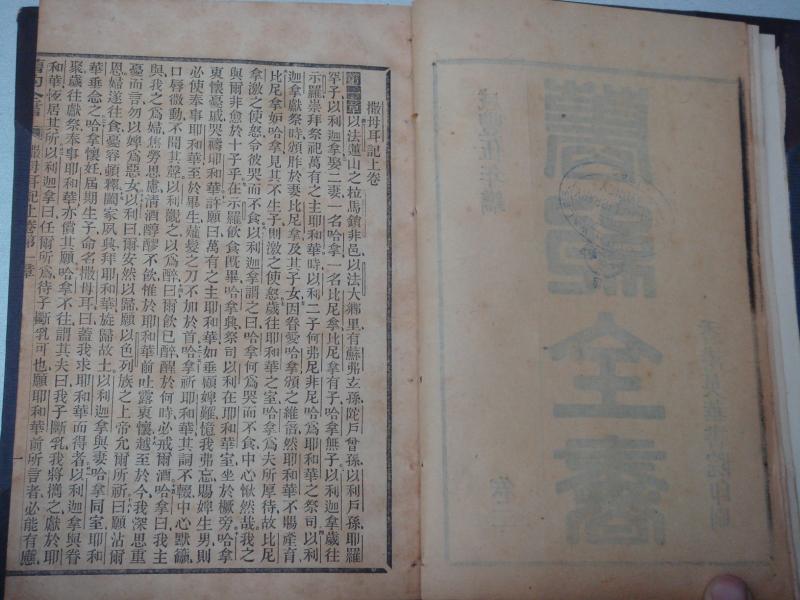 撒母耳記上卷
以法蓮山之拉馬鎖非邑以法大鄉里有蘇弗玄孫陀戶曾孫以利戶孫耶羅
罕子以利迦拿娶二妻一名哈拿一名比尼拿比尼拿有子哈拿無子以利迦拿歲往
示羅崇拜祭祀萬有之主耶和華時以利二子何弗尼非尼哈為耶和華之祭司以利
迦拿獻祭時頒胙於妻比尼拿及其子女因眷愛哈拿頒之維倍然耶和華不賜產育
比尼拿如哈拿見其不生子則激之使怒歲往耶和華之室哈拿為夫所厚待故比尼
拿激之使怒令彼哭而不食以利迦拿謂之曰哈拿何為哭而不食中心愀然哉我之
與爾非愈於十子乎在示羅飲食既畢哈拿興祭司以利在耶和華室坐於橛旁哈拿
衷懷憂戚哭禱耶和華許願曰萬有之主耶和華如垂顧婢難憶我弗忘賜婢生男則
必使奉事耶和華至於畢生薙髮之刀不加於首哈拿祈耶和華其詞不輟中心默籲
口唇微動不聞其聲以利觀之以為醉曰爾飲已醉醒於何時必戒爾酒哈拿曰我主
與我之為婦焦勞思慮清酒醇醪不飲惟於耶和華前吐露衷懷越至於今我深思重
憂而言勿以婢為惡女以利曰爾安然以歸願以色列族之上帝允爾所祈曰願沾爾
恩婦遂往食憂容頓釋闔家夙興拜耶和華旋歸故土以利迦拿與妻哈拿同室耶和
華垂念之哈拿懷妊屆期生子命名撒母耳曰蓋我求耶和華而得者以利迦拿與眷
聚歲往獻祭奉事耶和華亦償其願哈拿不往謂其夫曰我子斷乳我將攜之獻於耶
和華恆居其所以利迦拿曰任爾所為待子斷乳可也願耶和華前所言者必能有應
舊約全書 撒母耳記上卷第一章 一